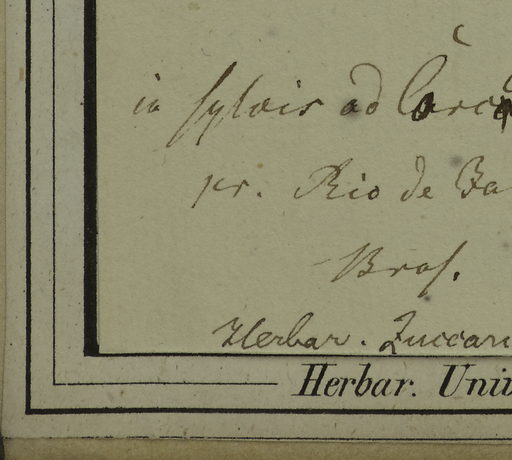 in sylvis ad Corco
pr. Rio de Ja
Bras.
Herbar. Zuccari
Herbar. Univ